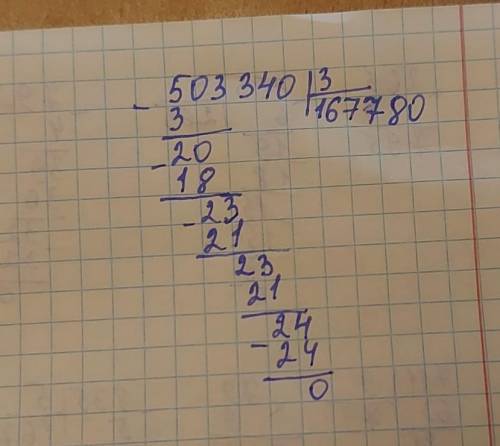 - 503 340 | 3
3 167780
- 20
18
- 23
21
23
21
24
- 24
0